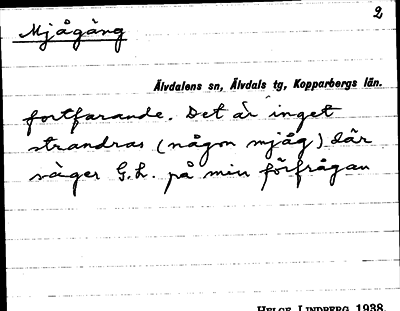 2
Mjågäng
Älvdalens sn, Älvdals tg, Kopparbergs län.
fortfarande. Det är inget
strandras (någon mjåg) där
säger G.L. på min förfrågan
HELGE LINDBERG 1938.